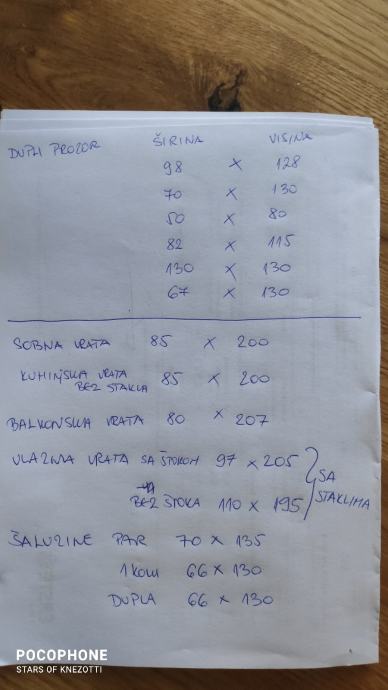 ŠIRINA VISINA
DUPLI PROZOR 98 x 128
70 x 130
50 x 80
82 x 115
130 x 130
67 x 130
SOBNA VRATA 85 x 200
KUHINJSKA VRATA 85 x 200
BEZ STAKLA
BALKONSKA VRATA 80 x 207
ULAZNA VRATA SA ŠTOKOM 97 x 205
BEZ ŠTOKA 110 x 195
SA STAKLIMA
ŠALUZINE PAR 70 x 135
1 KOM 66 x 130
DUPLA 66 x 130
POCOPHONE
STARS OF KNEZOTTI